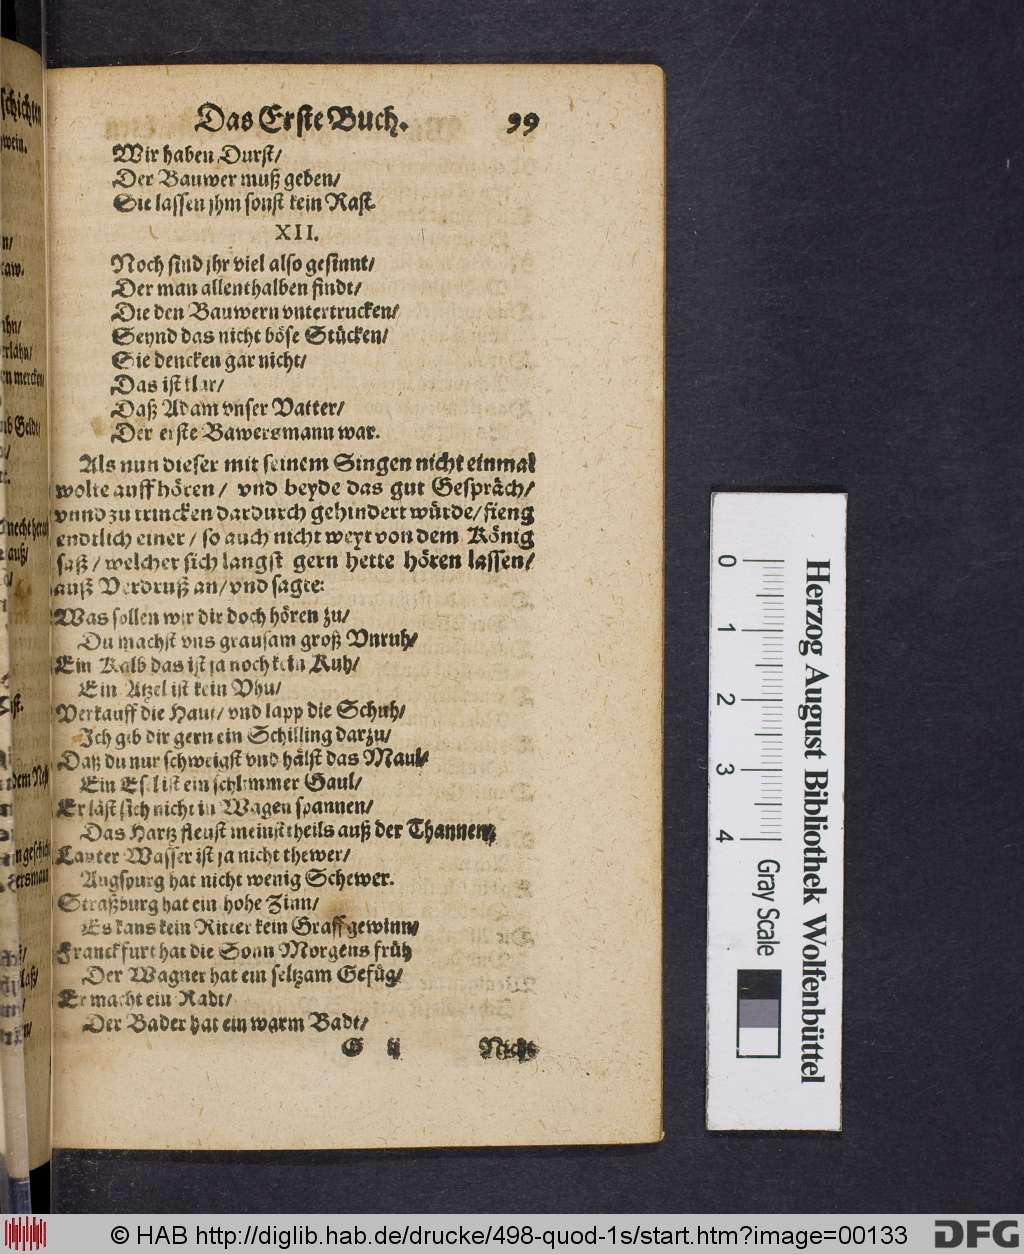 Das Erste Buch. 99
Wir haben Durst/
Der Bauwer muß geben/
Sie lassen jhm sonst kein Rast.
XII.
Noch sind jhr viel also gesinnt/
Der man allenthalben findt/
Die den Bauwern vntertrucken/
Seynd das nicht böse Stücken/
Sie dencken gar nicht/
Das ist klar/
Daß Adam vnser Vatter/
Der erste Bawersmann war.
Als nun dieser mit seinem Singen nicht einmal
wolte auff hören/ vnd beyde das gut Gespräch/
vnnd zu trincken dardurch gehindert würde/ fieng
endtlich einer/ so auch nicht weyt von dem König
saß/ welcher sich langst gern hette hören lassen/
auß Verdruß an/ vnd sagte:
Was sollen wir dir doch hören zu/
Du machst vns grausam groß Vnruh/
Ein Kalb das ist ja noch kein Kuh/
Ein Atzel ist kein Vhu/
Verkauff die Haut/ vnd lapp die Schuh/
Ich gib dir gern ein Schilling darzu/
Daß du nur schweigst vnd hälst das Maul/
Ein Esel ist ein schlimmer Gaul/
Er läst sich nicht in Wagen spannen/
Das Hartz fleust meinst theils auß der Thannen/
Lauter Wasser ist ja nicht thewer/
Augspurg hat nicht wenig Schewer.
Straßburg hat ein hohe Zinn/
Es kans kein Ritter kein Graff gewinn/
Franckfurt hat die Sonn Morgens früh
Der Wagner hat ein seltzam Gefüg/
Er macht ein Radt/
Der Bader hat ein warm Badt/
G ij Nicht
schichten
wein.
n/
raw.
ihn/
erlahn/
en mercken/
Geldt/
necht
auß/
ist.
dem
ersman
laß/
Herzog August Bibliothek Wolfenbüttel
0 1 2 3 4 Gray Scale
© HAB http://diglib.hab.de/drucke/498-quod-1s/start.htm?image=00133 DFG